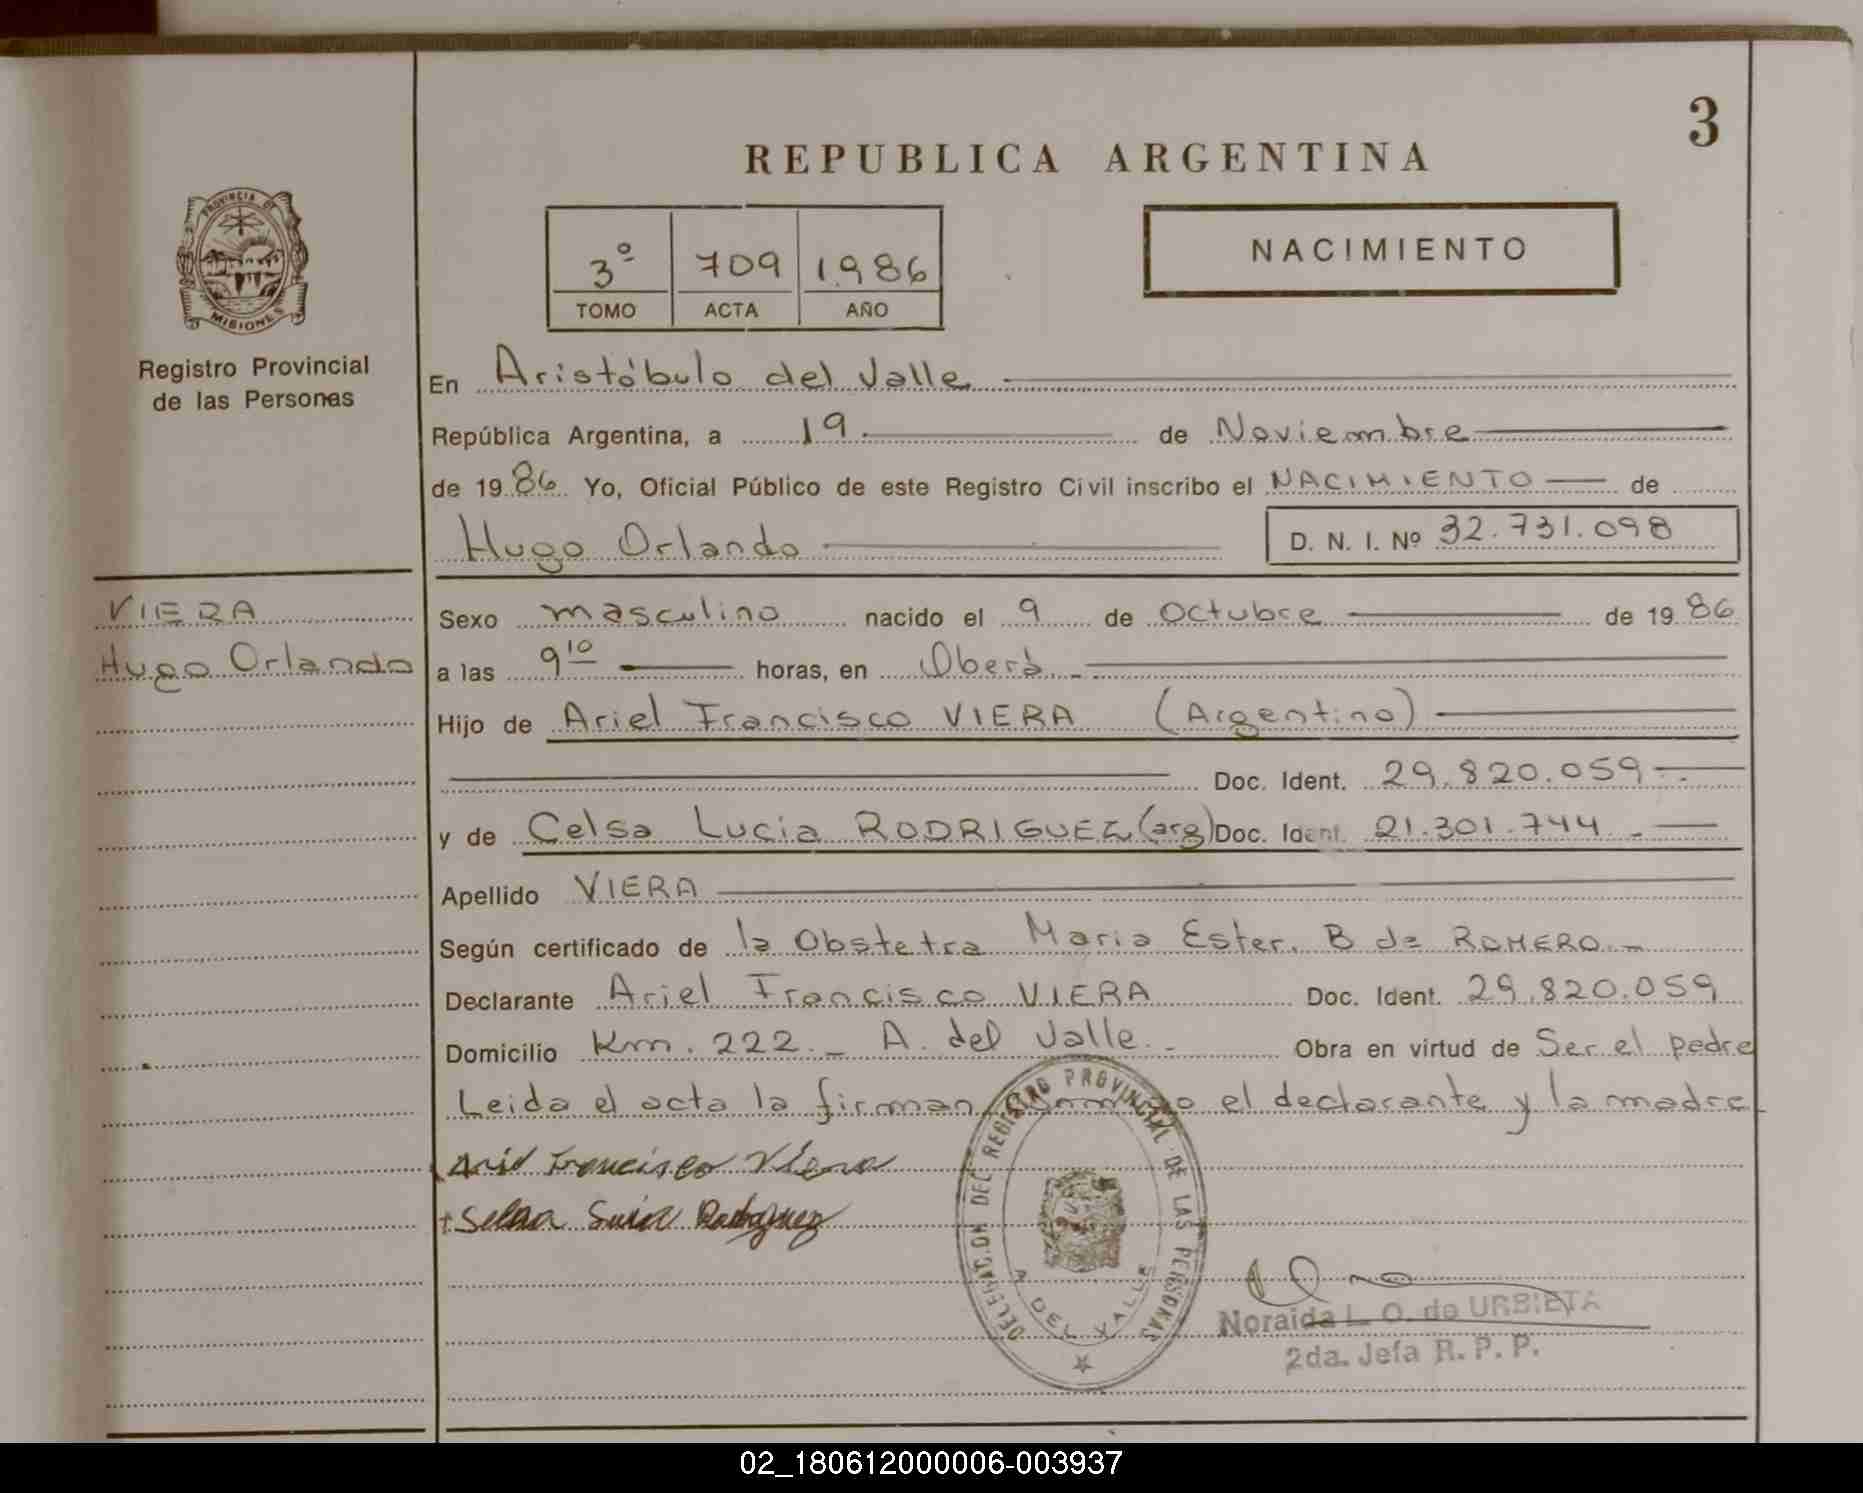 3
REPUBLICA ARGENTINA
PROVINCIA DE
MISIONES
Registro Provincial
de las Personas
3º 709 1.986
TOMO ACTA AÑO
NACIMIENTO
En Aristóbulo del Valle
República Argentina, a 19 de Noviembre
de 1986 Yo, Oficial Público de este Registro Civil inscribo el NACIMIENTO de
Hugo Orlando D. N. I. Nº 32.731.098
VIERA
Hugo Orlando
Sexo masculino nacido el 9 de Octubre de 1986
a las 9 10 horas, en Oberá
Hijo de Ariel Francisco VIERA (Argentino)
Doc. Ident. 29.820.059
y de Celsa Lucia RODRIGUEZ (arg) Doc. Ident. 21.301.744
Apellido VIERA
Según certificado de la Obstetra Maria Ester. B de ROMERO
Declarante Ariel Francisco VIERA Doc. Ident. 29.820.059
Domicilio Km. 222 - A. del Valle. Obra en virtud de Ser el padre
Leida el acta la firman conmigo el declarante y la madre
Ariel Francisco Viera
Selsa Lucia Rodriguez
DELEGACION DEL REGISTRO PROVINCIAL DE LAS PERSONAS
A. DEL VALLE
Noraida L. O. de URBIETA
2da. Jefa R. P. P.
02_180612000006-003937